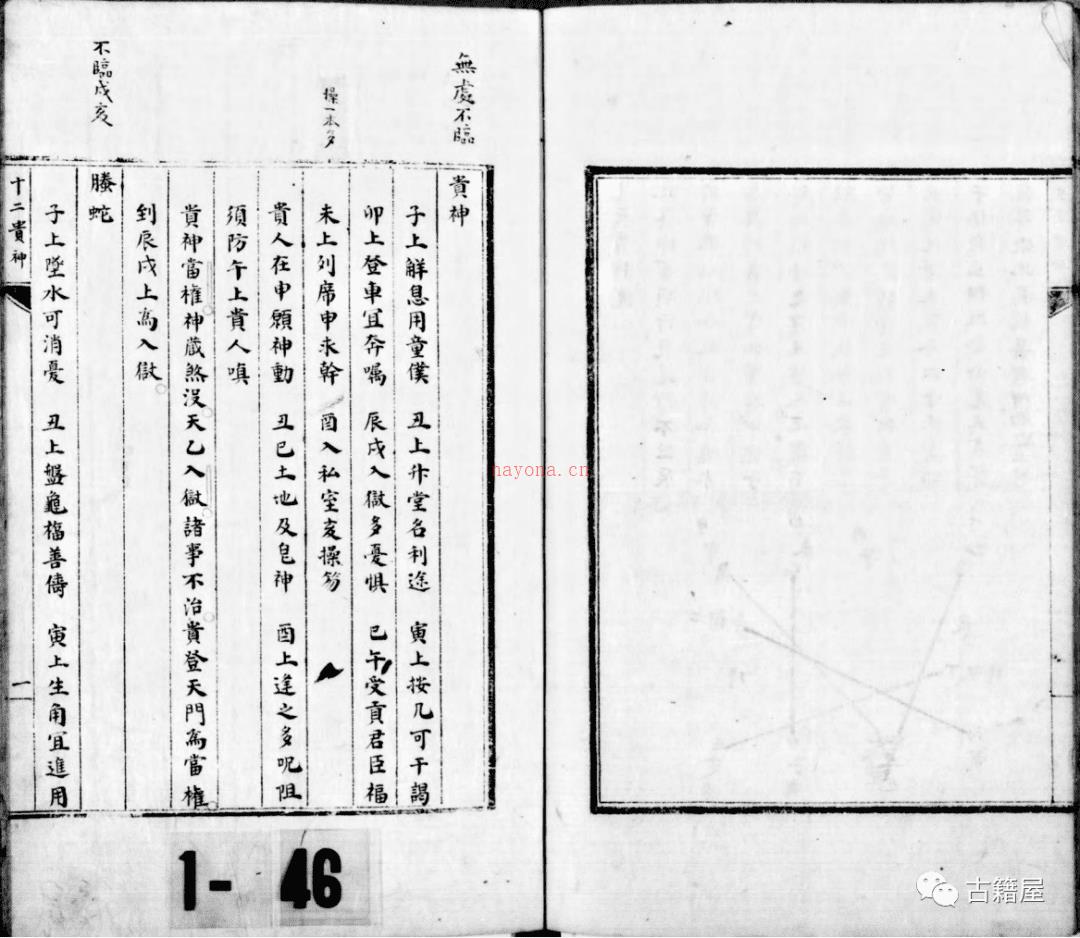 無處不臨
操一本多
不臨戌亥
貴神
子上解息用童僕　丑上升堂名利途　寅上按几可干謁
卯上登車宜奔囑　辰戌入獄多憂惧　巳午受貢君臣福
未上列席申求幹　酉入私室亥操笏
貴人在申願神動　丑巳土地及皂神　酉上逢之多呪阻
須防午上貴人嗔
貴神當權神藏煞没天乙入獄諸事不治貴登天門為當權
到辰戌上為入獄
螣蛇
子上墜水可消憂　丑上盤龜福善儔　寅上生角宜進用
十二貴神
一
1- 46
nayona.cn
古籍屋